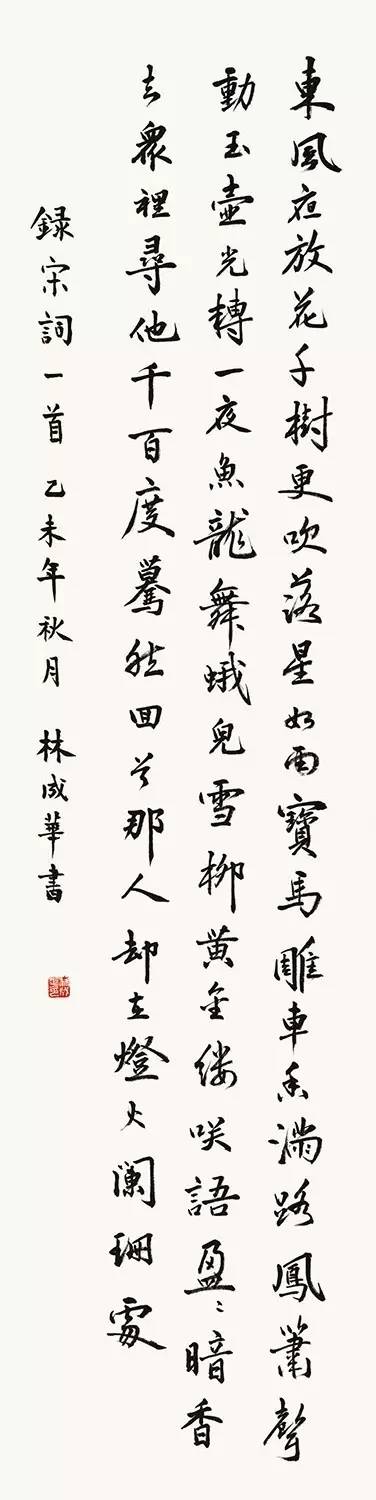 東風夜放花千樹更吹落星如雨寶馬雕車香滿路鳳簫聲
動玉壺光轉一夜魚龍舞蛾兒雪柳黄金縷咲語盈〻暗香
去衆裡尋他千百度驀然回首那人却在燈火瀾珊處
録宋詞一首 乙未年秋月 林成華書